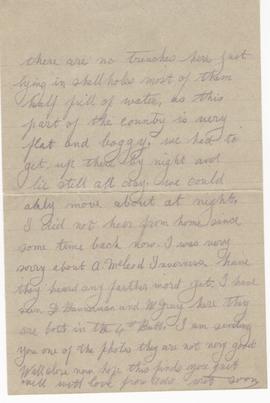 there are no trenches here just
lying in shell holes most of them
half full of water, as this
part of the country is very
flat and boggy, we had to
get up there by night and
lie still all day. we could
only move about at night.
I did not hear from home since
some time back now. I was very
sorry about A. McLeod Inverness. have
they heard any further word yet. I have
seen D and W. here they
are both in the 4th I am sending
you one of the photos they are not very good
Will close now hope this finds you just
well with love from write soon